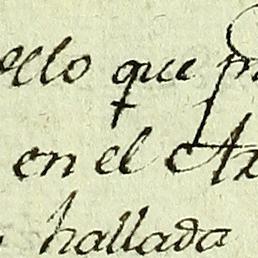 ello que
en el
hallada